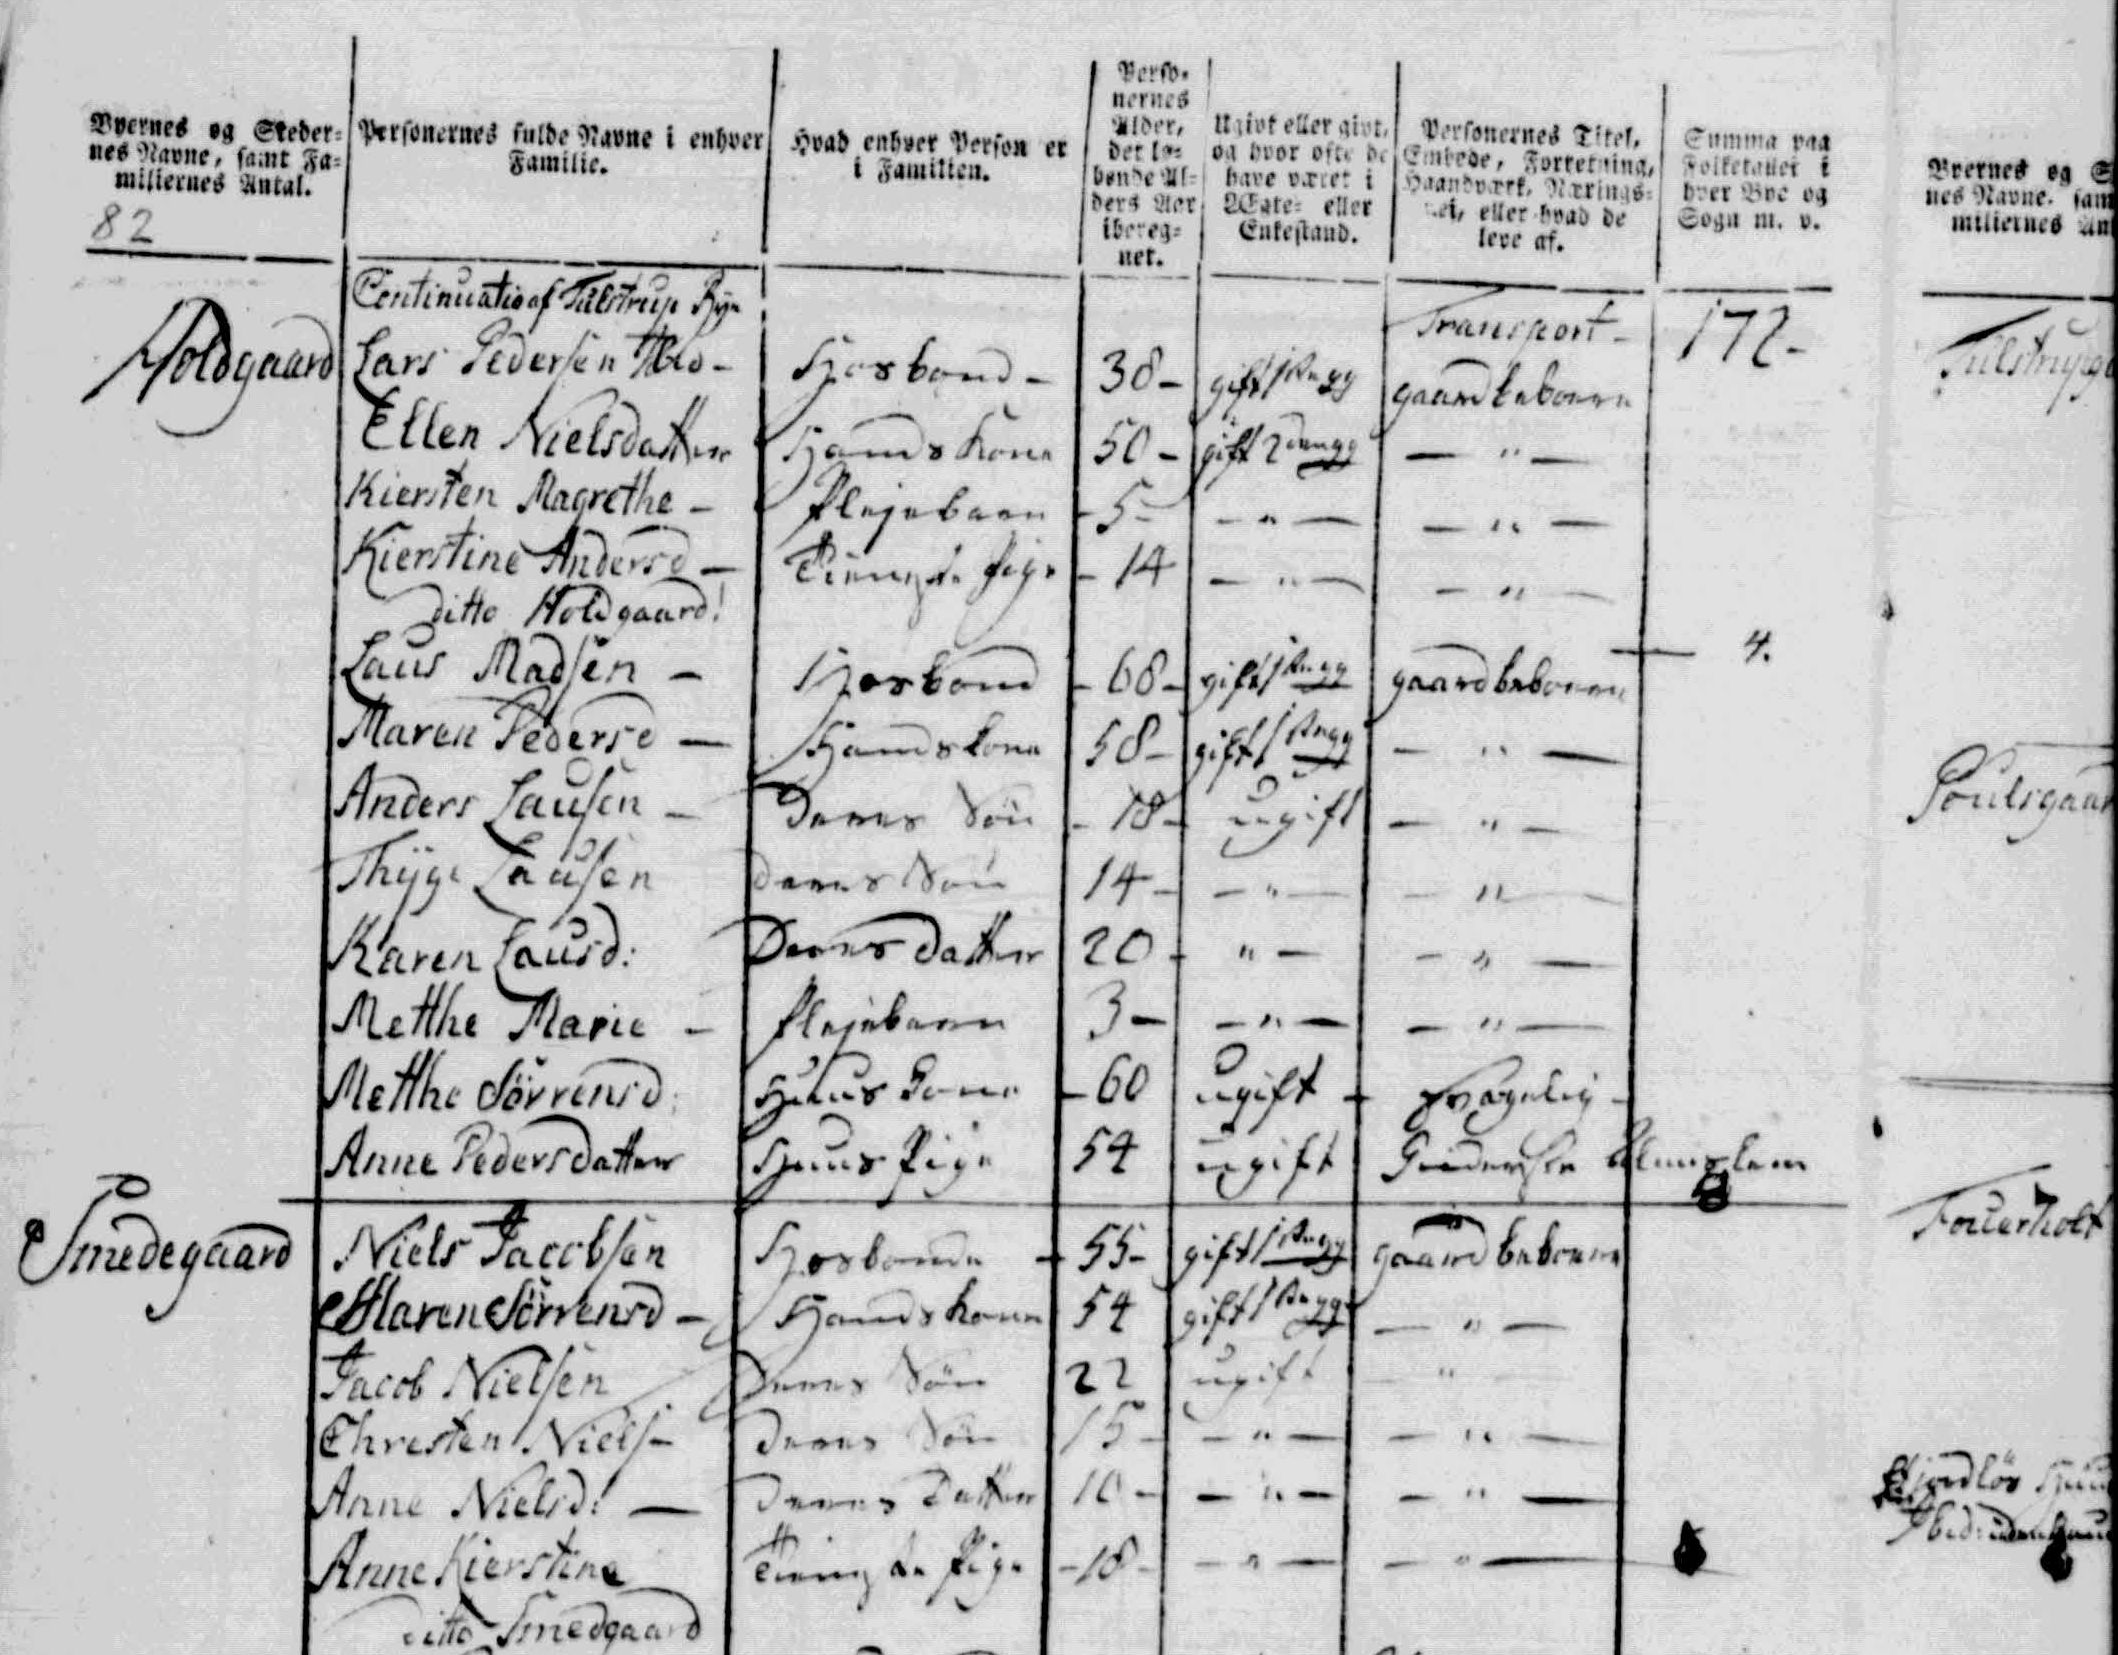 Byernes og Steder=
nes Navne, samt Fa=
miliernes Antal.
82
Personernes fulde Navne i enhver
Familie.
Hvad enhver Person er
i Familien.
Perso=
nernes
Alder,
det lø=
bende Al=
ders Aar
ibereg=
net.
Ugivt eller givt,
og hvor ofte de
have været i
Ægte= eller
Enkestand.
Personernes Titel,
Embede, Forretning,
Haandværk, Nærings=
vei, eller hvad de
leve af.
Summa paa
Folketallet i
hver Bye og
Sogn m. v.
Byernes og S
nes Navne, sam
miliernes An
Continuatio af Tulstrup Bye
Transport - 172 -
Holdgaard Lars Pedersen - Hosbond - 38 - gift 1 gaardbeboere
Ellen Nielsdatter Hands Kone 50 - gift 2den gg — " —
Kiersten Magrethe - Plejebarn - 5 - — " — — " —
Kierstine Andersd — Tienste Pige - 14 — " — — " —
ditto Holdgaard! — 4.
Laus Madsen - Hosbond - 68 - gift 1 gaardbeboere
Maren Pedersd — Hands kone 58 - gift 1 — " —
Anders Lausen - Deres Sön - 18 - ugift — " —
Thÿge Lausen Deres Sön 14 - — " — — " —
Karen Lausd: Deres datter 20 - " — — " —
Metthe Marie - Plejebarn 3 - — " — — " —
Metthe Sörrensd: Huus Kone - 60 ugift - svagelig -
Anne Pedersdatter Huus Pige 54 ugift Almuslem
Smedegaard Niels Jacobsen Hosbonde - 55 - gift 1 gaardbeboere
Maren Sörrensd - Hands kone 54 gift 1 — " —
Jacob Nielsen Deres Sön 22 ugift "
Christen Niels - Deres Sön 15 - — " — — " —
Anne Nielsd: — Deres Datter 10 - — " — — " —
Anne Kierstine Tienste Pige - 18 - — " — — " —
ditto Smedgaard
Tulstrupg
Poulsgaar
Fouerholt